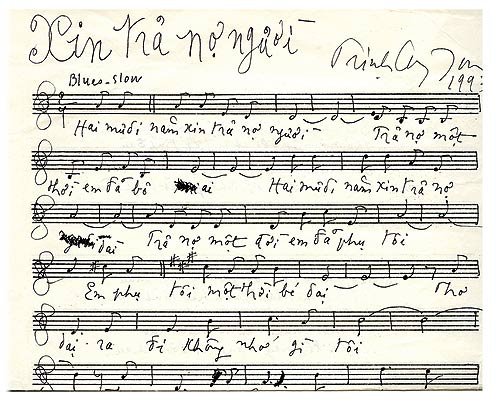 Xin trả nợ người
Trịnh Công Sơn
1993
Blues-slow
Hai mươi năm xin trả nợ người – Trả nợ một
thời em đã bỏ ai Hai mươi năm xin trả nợ
dài Trả nợ một đời em đã phụ tôi
Em phụ tôi một thời bé dại Thơ
dại ra đi không nhớ gì tôi